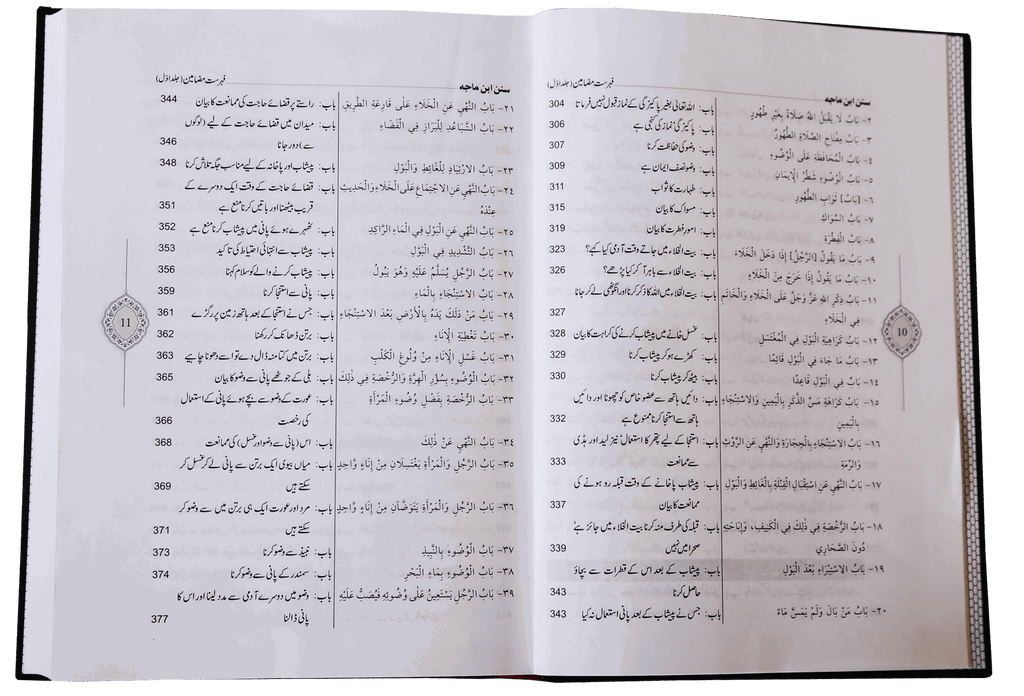 سنن ابن ماجه فہرست مضامین (جلد اوّل)
٢- بَابُ لَا يَقْبَلُ اللهُ صَلَاةً بِغَيْرِ طُهُورٍ باب: اللہ تعالیٰ بغیر پاکیزگی کے نماز قبول نہیں فرماتا 304
٣- بَابُ مِفْتَاحِ الصَّلَاةِ الطُّهُورُ باب: پاکیزگی نماز کی کنجی ہے 306
٤- بَابُ الْمُحَافَظَةِ عَلَى الْوُضُوءِ باب: وضو کی حفاظت کرنا 307
٥- بَابُ الْوُضُوءِ شَطْرُ الْإِيمَانِ باب: وضو نصف ایمان ہے 309
٦- [بَابُ] ثَوَابِ الطُّهُورِ باب: طہارت کا ثواب 311
٧- بَابُ السِّوَاكِ باب: مسواک کا بیان 315
٨- بَابُ الْفِطْرَةِ باب: امور فطرت کا بیان 319
٩- بَابُ مَا يَقُولُ [الرَّجُلُ] إِذَا دَخَلَ الْخَلَاءَ باب: بیت الخلاء میں جاتے وقت آدمی کیا کہے؟ 323
١٠- بَابُ مَا يَقُولُ إِذَا خَرَجَ مِنَ الْخَلَاءِ باب: بیت الخلاء سے باہر آ کر کیا پڑھے؟ 326
١١- بَابُ ذِكْرِ اللهِ عَزَّ وَجَلَّ عَلَى الْخَلَاءِ وَالْخَاتَمِ باب: بیت الخلاء میں اللہ کا ذکر کرنا اور انگوٹھی لے کر جانا
فِي الْخَلَاءِ 327
١٢- بَابُ كَرَاهِيَةِ الْبَوْلِ فِي الْمُغْتَسَلِ باب: غسل خانے میں پیشاب کرنے کی کراہت کا بیان 328
١٣- بَابُ مَا جَاءَ فِي الْبَوْلِ قَائِمًا باب: کھڑے ہو کر پیشاب کرنا 329
١٤- بَابٌ فِي الْبَوْلِ قَاعِدًا باب: بیٹھ کر پیشاب کرنا 330
١٥- بَابُ كَرَاهَةِ مَسِّ الذَّكَرِ بِالْيَمِينِ وَالِاسْتِنْجَاءِ باب: دائیں ہاتھ سے عضو خاص کو چھونا اور دائیں
بِالْيَمِينِ ہاتھ سے استنجا کرنا ممنوع ہے 332
١٦- بَابُ الِاسْتِنْجَاءِ بِالْحِجَارَةِ وَالنَّهْيِ عَنِ الرَّوْثِ باب: استنجا کے لیے پتھر کا استعمال نیز لید اور ہڈی
وَالرِّمَّةِ سے ممانعت 333
١٧- بَابُ النَّهْيِ عَنِ اسْتِقْبَالِ الْقِبْلَةِ بِالْغَائِطِ وَالْبَوْلِ باب: پیشاب پاخانے کے وقت قبلہ رو ہونے کی
ممانعت کا بیان 337
١٨- بَابُ الرُّخْصَةِ فِي ذَلِكَ فِي الْكَنِيفِ، وَإِبَاحَتِهِ باب: قبلہ کی طرف منہ کرنا بیت الخلاء میں جائز ہے
دُونَ الصَّحَارِي صحرا میں نہیں 339
١٩- بَابُ الِاسْتِبْرَاءِ بَعْدَ الْبَوْلِ باب: پیشاب کے بعد اس کے قطرات سے بچاؤ
حاصل کرنا 343
٢٠- بَابُ مَنْ بَالَ وَلَمْ يَمَسَّ مَاءً باب: جس نے پیشاب کے بعد پانی استعمال نہ کیا 343
10
سنن ابن ماجه فہرست مضامین (جلد اوّل)
٢١- بَابُ النَّهْيِ عَنِ الْخَلَاءِ عَلَى قَارِعَةِ الطَّرِيقِ باب: راستے پر قضائے حاجت کی ممانعت کا بیان 344
٢٢- بَابُ التَّبَاعُدِ لِلْبَرَازِ فِي الْفَضَاءِ باب: میدان میں قضائے حاجت کے لیے (لوگوں
سے) دور جانا 346
٢٣- بَابُ الِارْتِيَادِ لِلْغَائِطِ وَالْبَوْلِ باب: پیشاب اور پاخانہ کے لیے مناسب جگہ تلاش کرنا 348
٢٤- بَابُ النَّهْيِ عَنِ الِاجْتِمَاعِ عَلَى الْخَلَاءِ وَالْحَدِيثِ باب: قضائے حاجت کے وقت ایک دوسرے کے
عِنْدَهُ قریب بیٹھنا اور باتیں کرنا منع ہے 351
٢٥- بَابُ النَّهْيِ عَنِ الْبَوْلِ فِي الْمَاءِ الرَّاكِدِ باب: ٹھہرے ہوئے پانی میں پیشاب کرنا منع ہے 352
٢٦- بَابُ التَّشْدِيدِ فِي الْبَوْلِ باب: پیشاب سے انتہائی احتیاط کی تاکید 353
٢٧- بَابُ الرَّجُلِ يُسَلَّمُ عَلَيْهِ وَهُوَ يَبُولُ باب: پیشاب کرنے والے کو سلام کہنا 356
٢٨- بَابُ الِاسْتِنْجَاءِ بِالْمَاءِ باب: پانی سے استنجا کرنا 359
٢٩- بَابُ مَنْ دَلَكَ يَدَهُ بِالْأَرْضِ بَعْدَ الِاسْتِنْجَاءِ باب: جس نے استنجا کے بعد ہاتھ زمین پر رگڑے 361
٣٠- بَابُ تَغْطِيَةِ الْإِنَاءِ باب: برتن ڈھانک کر رکھنا 362
٣١- بَابُ غَسْلِ الْإِنَاءِ مِنْ وُلُوغِ الْكَلْبِ باب: برتن میں کتا منہ ڈال دے تو اسے دھونا چاہیے 363
٣٢- بَابُ الْوُضُوءِ بِسُؤْرِ الْهِرَّةِ وَالرُّخْصَةِ فِي ذَلِكَ باب: بلی کے جوٹھے پانی سے وضو کا بیان 365
٣٣- بَابُ الرُّخْصَةِ بِفَضْلِ وُضُوءِ الْمَرْأَةِ باب: عورت کے وضو سے بچے ہوئے پانی کے استعمال
کی رخصت 366
٣٤- بَابُ النَّهْيِ عَنْ ذَلِكَ باب: اس (پانی سے وضو اور غسل) کی ممانعت 368
٣٥- بَابُ الرَّجُلِ وَالْمَرْأَةِ يَغْتَسِلَانِ مِنْ إِنَاءٍ وَاحِدٍ باب: میاں بیوی ایک برتن سے پانی لے کر غسل کر
سکتے ہیں 369
٣٦- بَابُ الرَّجُلِ وَالْمَرْأَةِ يَتَوَضَّآنِ مِنْ إِنَاءٍ وَاحِدٍ باب: مرد اور عورت ایک ہی برتن میں سے وضو کر
سکتے ہیں 371
٣٧- بَابُ الْوُضُوءِ بِالنَّبِيذِ باب: نبیذ سے وضو کرنا 373
٣٨- بَابُ الْوُضُوءِ بِمَاءِ الْبَحْرِ باب: سمندر کے پانی سے وضو کرنا 374
٣٩- بَابُ الرَّجُلِ يَسْتَعِينُ عَلَى وُضُوئِهِ فَيُصَبُّ عَلَيْهِ باب: وضو میں دوسرے آدمی سے مدد لینا اور اس کا
پانی ڈالنا 377
11